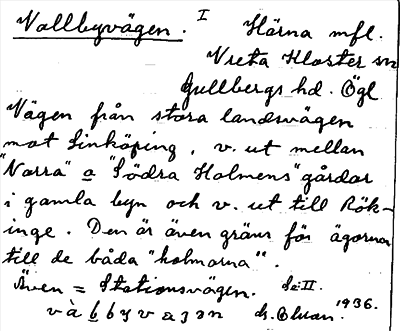 Vallbyvägen. I Härna mfl.
Vreta Kloster sn
Gullbergs hd. Ögl
Vägen från stora landsvägen
mot Linköping, v. ut mellan
"Norra" o "Södra Holmens" gårdar
i gamla byn och v. ut till Rök-
inge. Den är även gräns för ägorna
till de båda "holmarna".
Även = Stationsvägen. Se II.
1936.